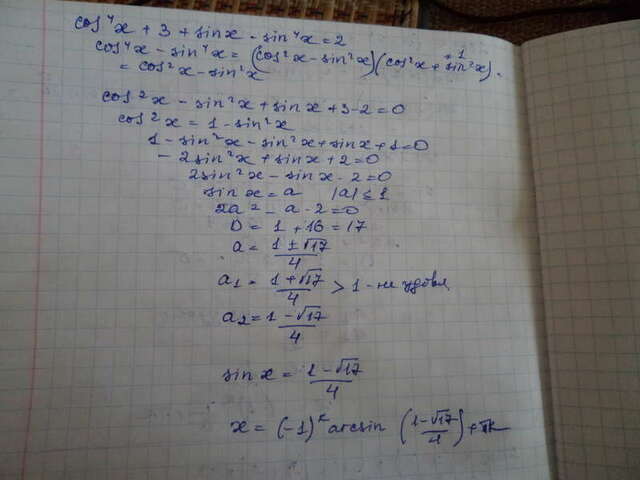 cos⁴x + 3 + sinx - sin⁴x = 2
cos⁴x - sin⁴x = (cos²x - sin²x)(cos²x + sin²x) = 1
= cos²x - sin²x
cos²x - sin²x + sinx + 3 - 2 = 0
cos²x = 1 - sin²x
1 - sin²x - sin²x + sinx + 1 = 0
- 2sin²x + sinx + 2 = 0
2sin²x - sinx - 2 = 0
sin x = a |a| ≤ 1
2a² - a - 2 = 0
D = 1 + 16 = 17
a = (1 ± √17)/4
a₁ = (1 + √17)/4 > 1 - не удовл
a₂ = (1 - √17)/4
sin x = (1 - √17)/4
x = (-1)ᵏ arcsin ((1 - √17)/4) + πk